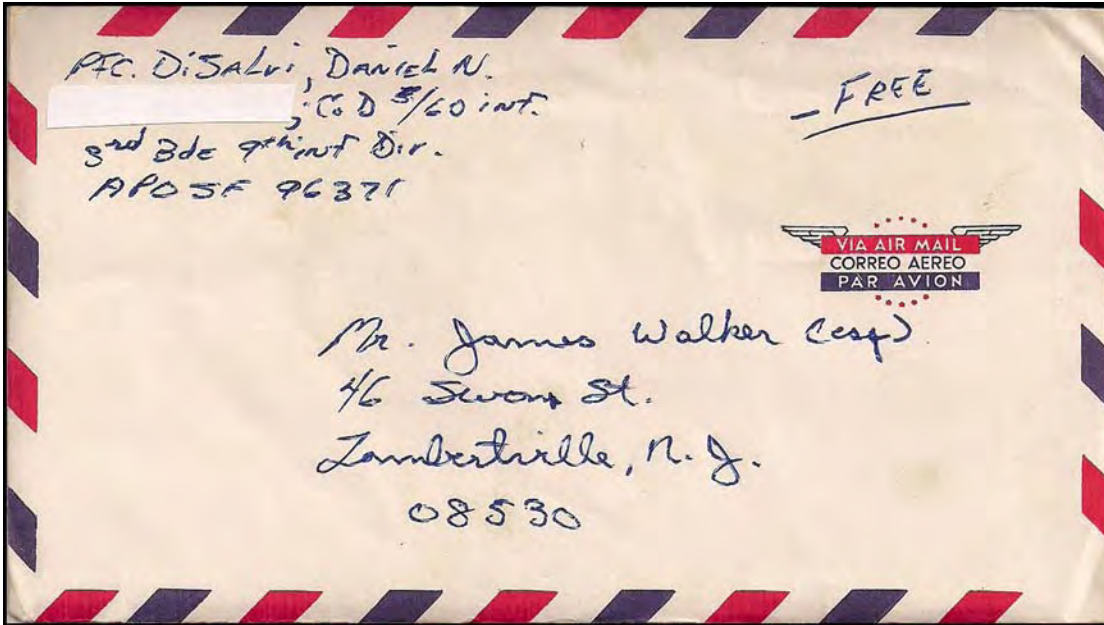 PFC. DiSALvi, DANiEL N.
; Co D 5/60 inf.
3rd Bde 9th inf Div.
APO SF 96371
FREE
VIA AIR MAIL
CORREO AEREO
PAR AVION
Mr. James Walker (esq)
46 Swan St.
Lambertville, N. J.
08530